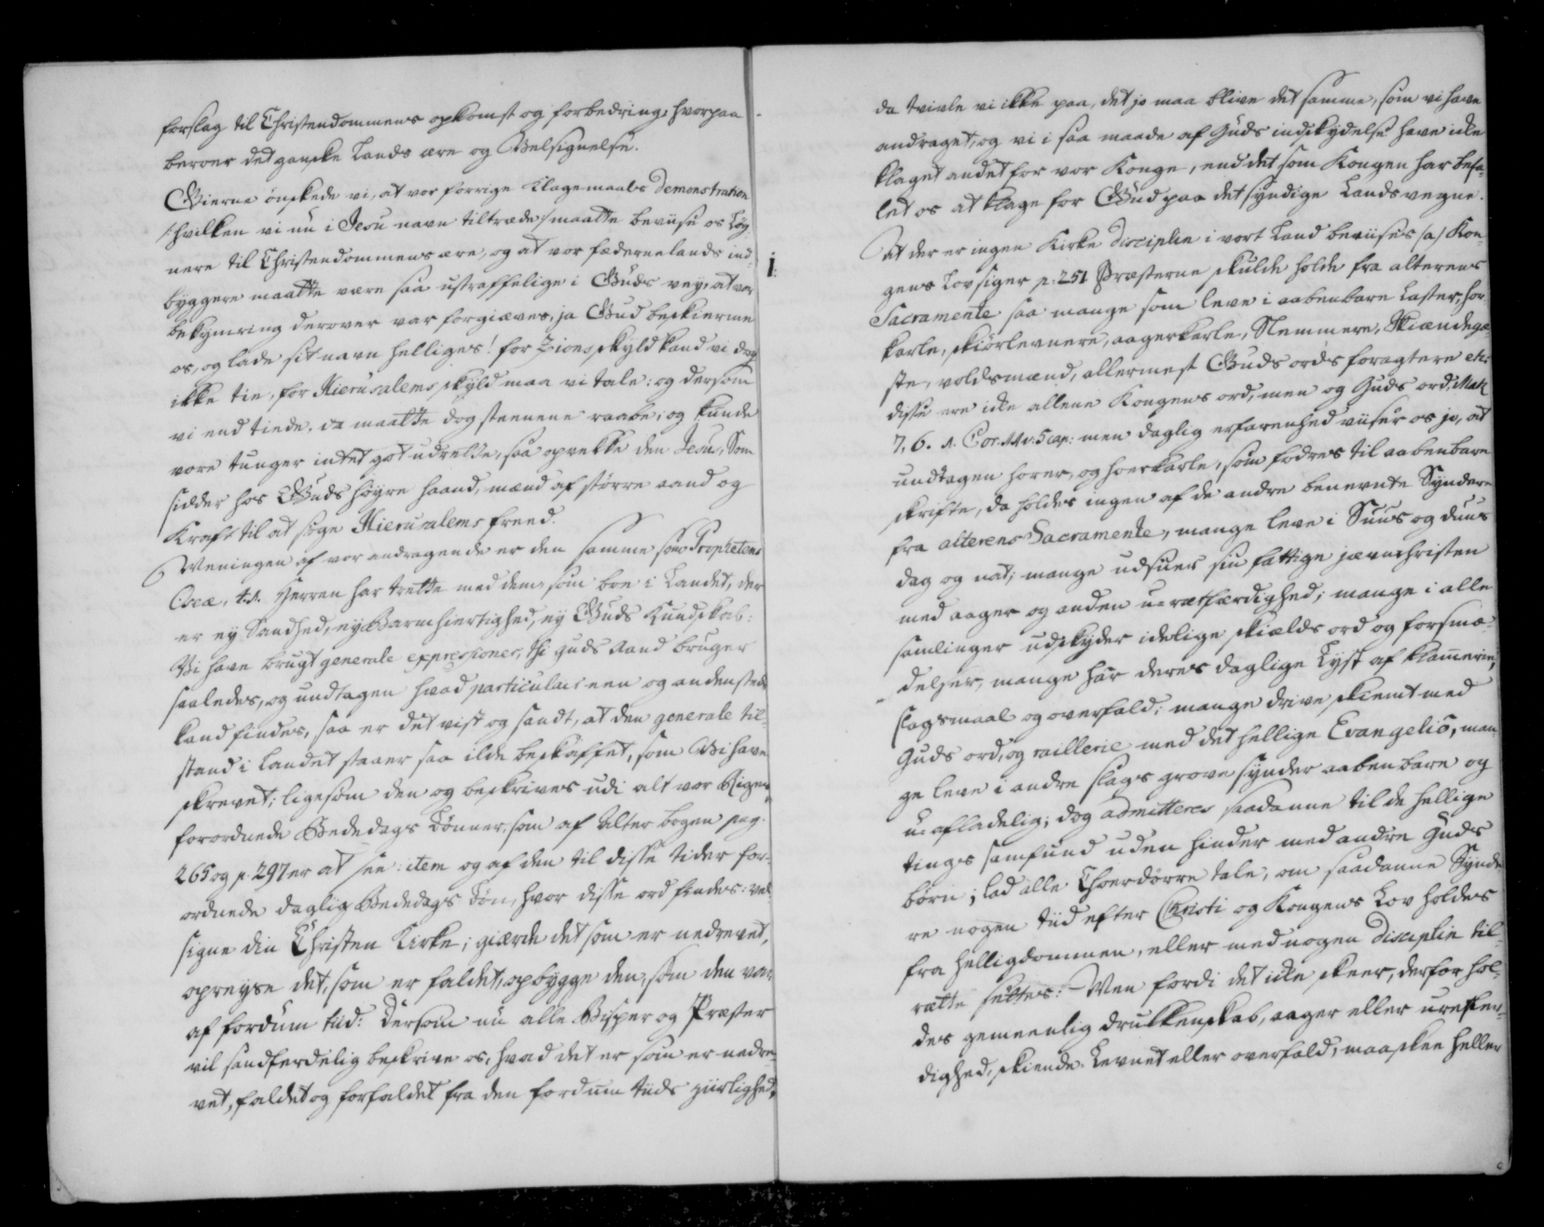 forslag til Christendommens opkomst og forbedring, hvorpaa
beroer det gandske Lands ære og Velsignelse.
Gierne ønskede vi, at vor forrige klagemaals Demonstration
/:hvilken vi nu i Jesu navn tiltræde:/ maatte beviise os Løg
nere til Christendommens ære, og at vor fædernelands ind-
byggere maatte være saa ustraffelige i Guds vey, at vor
bekymring derover var forgiæves, ja Gud beskierme
os, og lade sit navn helliges! for Zions skyld kand vi dog
ikke tie, for Hierusalems skyld maa vi tale: og dersom
vi end tiede, da maatte dog steenene raabe, og kunde
vore tunger intet got udrette, saa opvekke den Jesus, Som
sidder hos Guds høyre haand, mænd af større aand og
Kraft til at søge Hierusalems freed.
Meningen af vor andragende er den samme som Propheten
Oseæ. 4.1. Herren har trette med dem, som boe i Landet, der
er ey Sandhed, ey Barmhiertighed, ey Guds Kundskab:
Vi have brugt generale expressioner, thi Guds Aand bruger
saaledes, og undtagen hvad particulais een og andenstede
kand findes, saa er det vist og sandt, at den generale til-
stand i Landet staaer saa ilde beskaffet, som Vi have
skrevet; ligesom den og beskrives udi alt vor Kirkes
forordnede Bededags Bønner, som af Alter bogen pag.
265 og p. 297 er at see: item og af den til disse tider for-
ordnede daglig Bededags Bøn, hvor disse ord findes: vel
signe din Christen Kirke; giærde det som er nedrevet,
opreyse det, som er faldet, opbygge den, som den var
af fordum tiid: Dersom nu alle Bisper og Præster
vil sandferdelig beskrive os, hvad det er som er nedre-
vet, faldet og forfaldet fra den fordum tiids ziirlighed,
da tvivle vi ikke paa, det jo maa blive det samme, som vi have
andraget, og vi i saa maade af Guds indskydelse have icke
klaget andet for vor Konge, end det som Kongen har befa-
let os at klage for Gud paa det syndige Lands vegne.
At der er ingen Kirke disciplin i vort Land beviises /a/ Kon-
gens Lov siger p. 251 Præsterne skulde holde fra alterens
Sacramente saa mange som leve i aabenbare Laster, hor
karle, skiørlevnere, aagerkarle, Slemmere, Skiændegæ-
ste, voldsmænd, allermest Guds ords foragtere etc:
disse ere icke allene Kongens ord, men og Guds ord, Math
7, 6. 1. Cor. 11 v. 5 cap: men daglig erfarenhed viiser os jo, at
undtagen horer, og horkarle, som fodres til aabenbare
skrifte, da holdes ingen af de andre benevnte Syndere
fra alterens Sacramente, mange leve i Suus og Duus
dag og nat; mange udsuer sin fattige jævnchristen
med aager og anden u-ratfærdighed; mange i alle
samlinger udskyder idelige skields ord og forsmæ-
delser, mange har deres daglige Lyst af klammerie,
slagsmaal og overfald; mange drive skiemt med
Guds ord, og raillerie med det hellige Evangelio, man
ge leve i andre slags grove synder aabenbare og
u-afladelig; dog admitteres saadanne til de hellige
tings samfund uden hinder med andre Guds
børn; lad alle Choerdørre tale, om saadanne Synde
re nogen tiid efter Christi og Kongens Lov holdes
fra helligdommen, eller med nogen Disciplin til-
rætte settes: Men fordi det icke skeer, derfor hol-
des gemeenlig drukkenskab, aager eller uretfær-
dighed, skiende Levnet eller overfald, maaskee heller